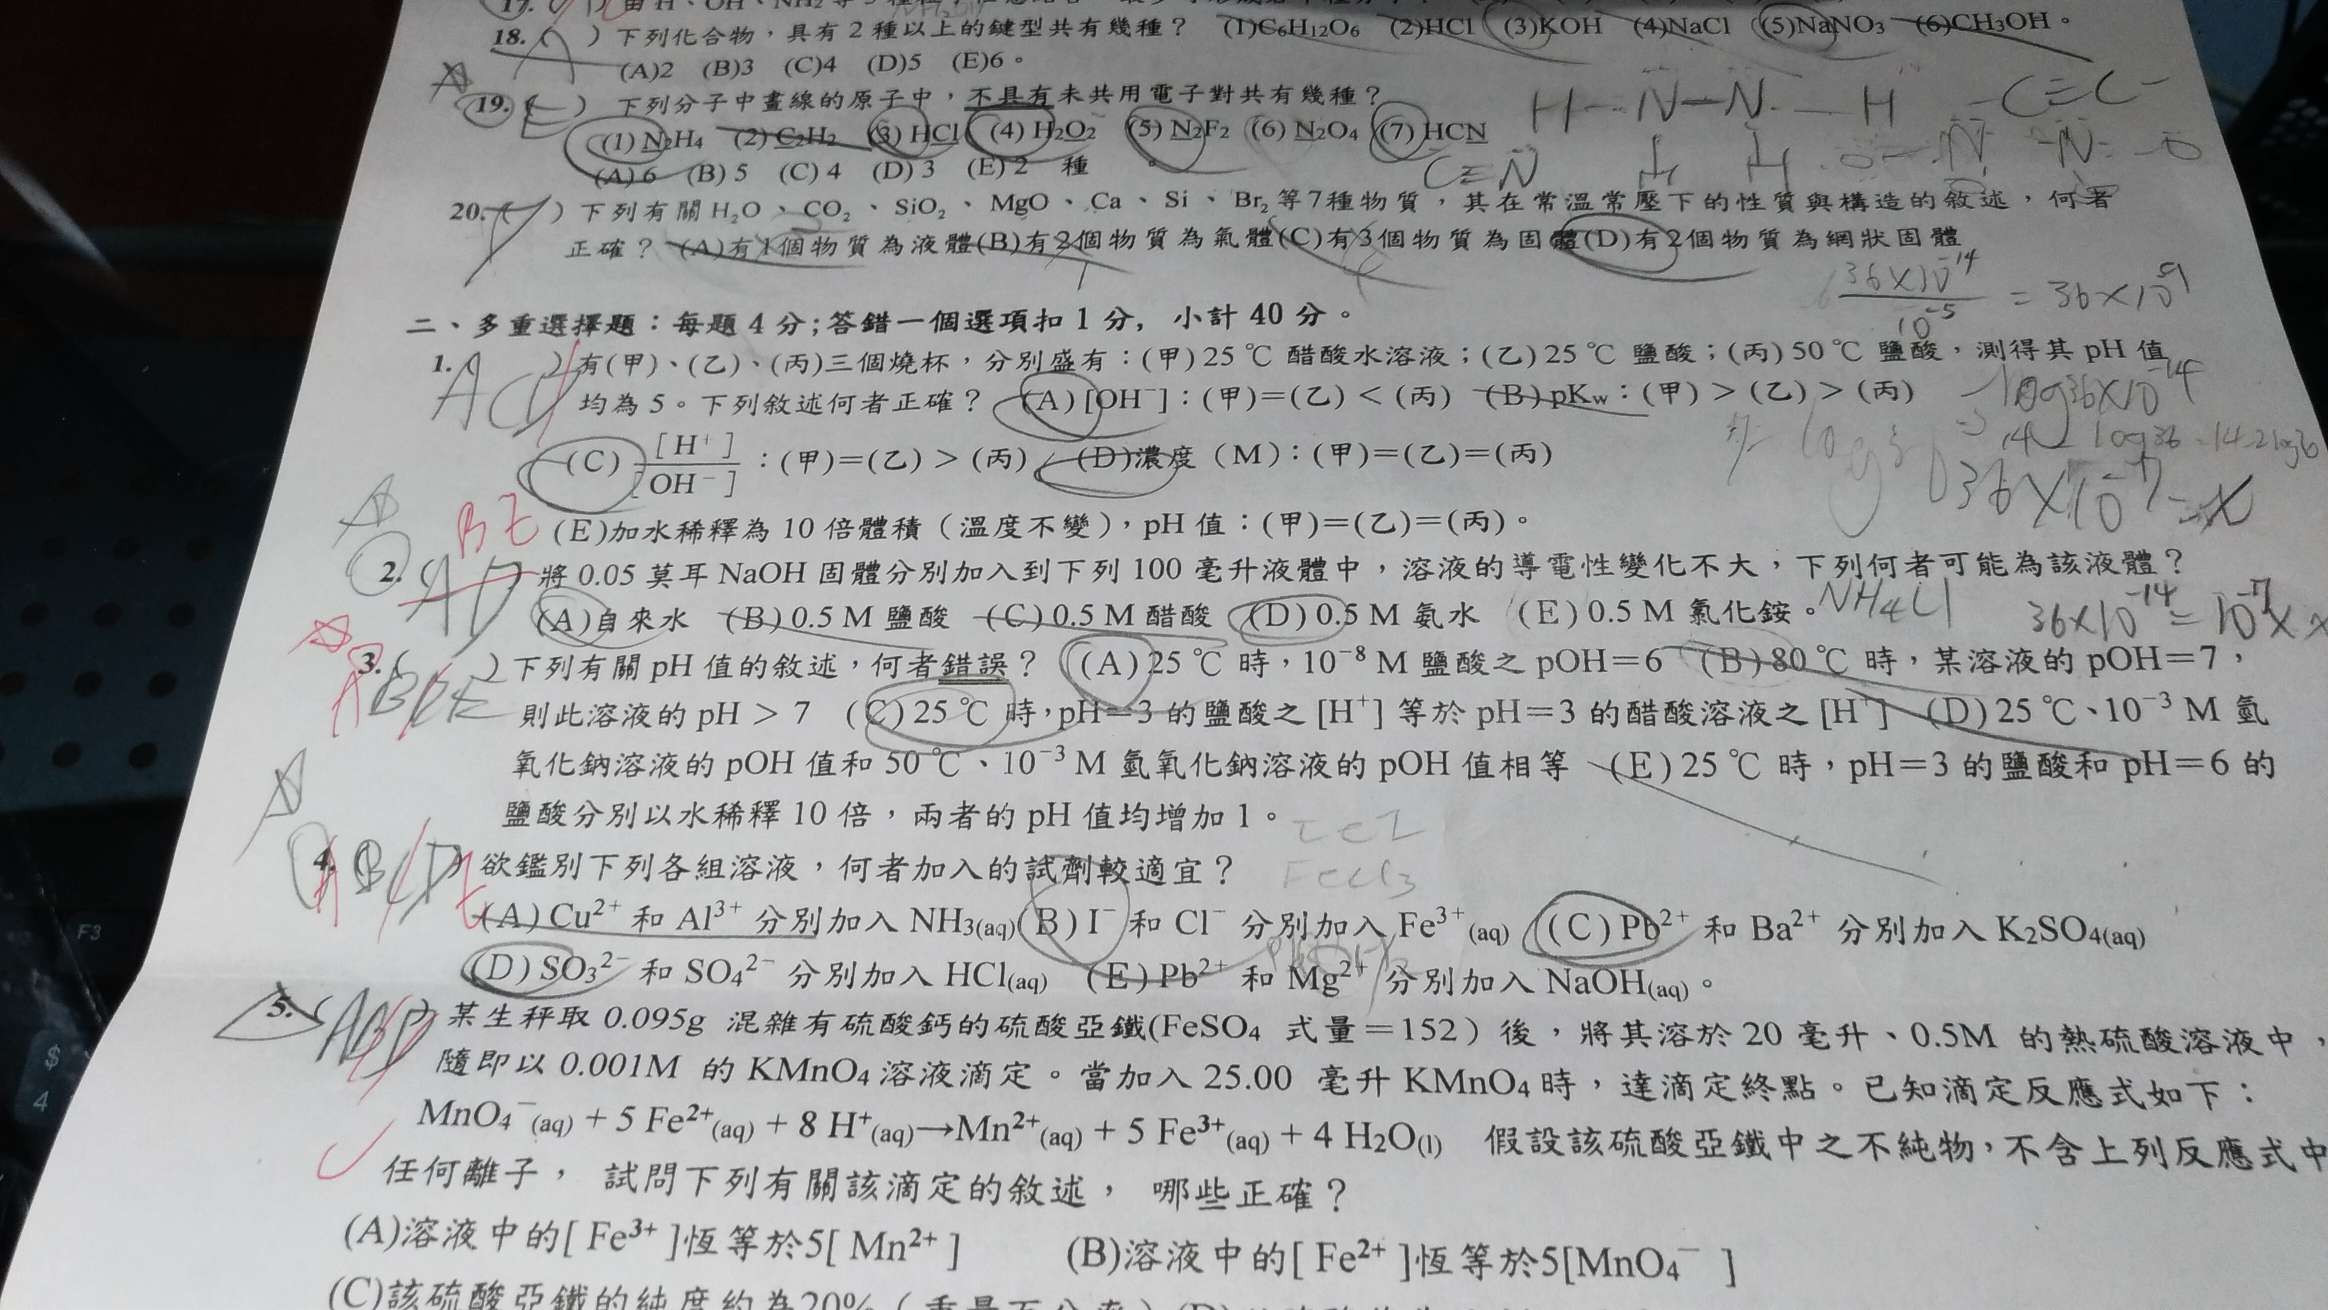 17.
18. ( ) 下列化合物，具有2種以上的鍵型共有幾種？ (1)C6H12O6 (2)HCl (3)KOH (4)NaCl (5)NaNO3 (6)CH3OH。
(A)2 (B)3 (C)4 (D)5 (E)6。
19. (E) 下列分子中畫線的原子中，不具有未共用電子對共有幾種？
(1) N2H4 (2) C2H2 (3) HCl (4) H2O2 (5) N2F2 (6) N2O4 (7) HCN
(A) 6 (B) 5 (C) 4 (D) 3 (E) 2 種。
H-N-N-H
H H
C≡N
-C≡C-
20. ( ) 下列有關H2O、CO2、SiO2、MgO、Ca、Si、Br2等7種物質，其在常溫常壓下的性質與構造的敘述，何者
正確？ (A)有1個物質為液體(B)有2個物質為氣體(C)有3個物質為固體(D)有2個物質為網狀固體
36×10-14
10-5
= 36×10-9
二、多重選擇題：每題4分;答錯一個選項扣1分, 小計40分。
1. ( ACD ) 有(甲)、(乙)、(丙)三個燒杯，分別盛有：(甲)25℃醋酸水溶液；(乙)25℃鹽酸；(丙)50℃鹽酸，測得其pH值
均為5。下列敘述何者正確？ (A)[OH−]：(甲)=(乙)<(丙) (B)pKw：(甲)>(乙)>(丙)
-log36×10-14
(C) [H+]/[OH−]：(甲)=(乙)>(丙) (D)濃度（M）：(甲)=(乙)=(丙)
14-log36=14-2log6
36×10-7=x
BE
(E)加水稀釋為10倍體積（溫度不變），pH值：(甲)=(乙)=(丙)。
2. ( AD 將0.05莫耳NaOH固體分別加入到下列100毫升液體中，溶液的導電性變化不大，下列何者可能為該液體？
(A)自來水 (B)0.5 M鹽酸 (C)0.5 M醋酸 (D)0.5 M氨水 (E)0.5 M氯化銨。NH4Cl
36×10-14=10-7×x
3. ( ) 下列有關pH值的敘述，何者錯誤？ (A)25℃時，10−8 M鹽酸之pOH=6 (B)80℃時，某溶液的pOH=7，
則此溶液的pH＞7 (C)25℃時，pH=3的鹽酸之[H+]等於pH=3的醋酸溶液之[H+] (D)25℃、10−3 M氫
氧化鈉溶液的pOH值和50℃、10−3 M氫氧化鈉溶液的pOH值相等 (E)25℃時，pH=3的鹽酸和pH=6的
鹽酸分別以水稀釋10倍，兩者的pH值均增加1。
FeCl3
4. ( ) 欲鑑別下列各組溶液，何者加入的試劑較適宜？
(A)Cu2+和Al3+分別加入NH3(aq)(B)I−和Cl−分別加入Fe3+(aq) (C)Pb2+和Ba2+分別加入K2SO4(aq)
(D)SO32−和SO42−分別加入HCl(aq) (E)Pb2+和Mg2+分別加入NaOH(aq)。
5. ( ABD ) 某生秤取0.095g 混雜有硫酸鈣的硫酸亞鐵(FeSO4 式量=152) 後，將其溶於20毫升、0.5M 的熱硫酸溶液中，
隨即以0.001M 的KMnO4溶液滴定。當加入25.00 毫升KMnO4時，達滴定終點。已知滴定反應式如下：
MnO4−(aq) + 5 Fe2+(aq) + 8 H+(aq)→Mn2+(aq) + 5 Fe3+(aq) + 4 H2O(l) 假設該硫酸亞鐵中之不純物，不含上列反應式中
任何離子， 試問下列有關該滴定的敘述， 哪些正確？
(A)溶液中的[ Fe3+ ]恆等於5[ Mn2+ ] (B)溶液中的[ Fe2+ ]恆等於5[MnO4− ]
(C)該硫酸亞鐵的純度約為20%
F3
$
4